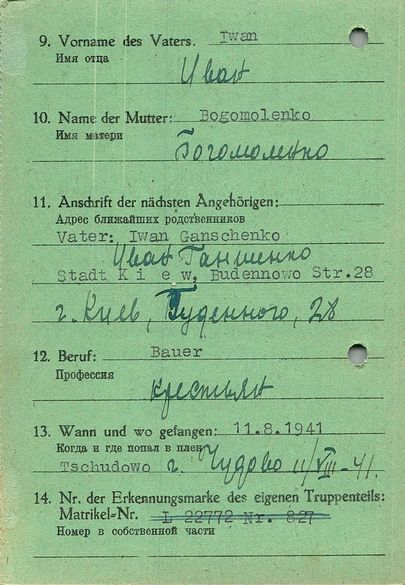 9. Vorname des Vaters. Iwan
Имя отца
Иван
10. Name der Mutter: Bogomolenko
Имя матери
Богомоленко
11. Anschrift der nächsten Angehörigen:
Адрес ближайших родственников
Vater: Iwan Ganschenko
Иван Ганшенко
Stadt K i e w, Budennowo Str.28
г. Киев, Буденного, 28
12. Beruf: Bauer
Профессия
крестьян
13. Wann und wo gefangen: 11.8.1941
Когда и где попал в плен
Tschudowo г. Чудово 11/VIII-41.
14. Nr. der Erkennungsmarke des eigenen Truppenteils:
Matrikel-Nr. L 22772 Nr. 827
Номер в собственной части